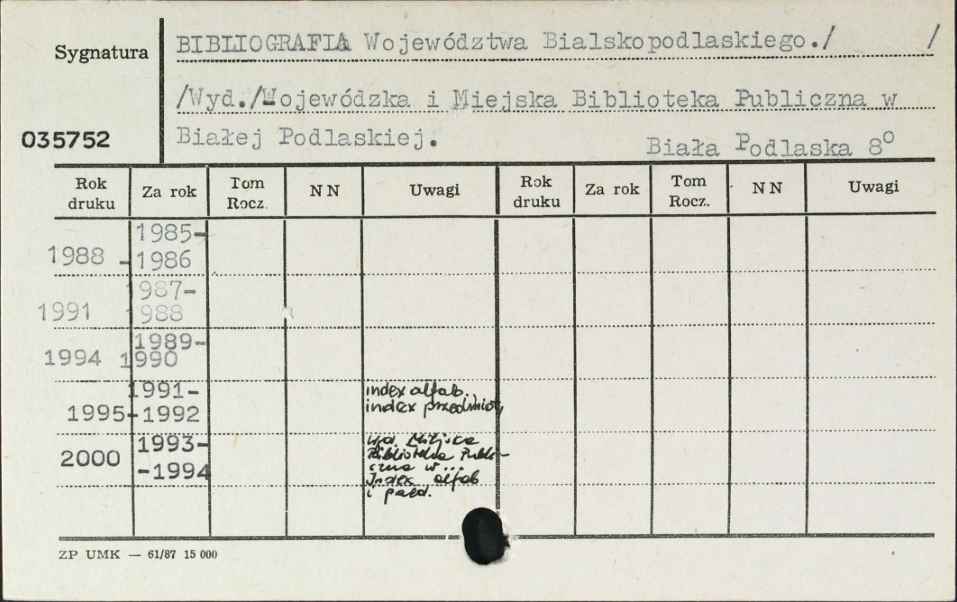 Sygnatura
BIBLIOGRAFIA Województwa Bialskopodlaskiego./ /
/Wyd./Wojewódzka i Miejska Biblioteka Publiczna w
035752
Białej Podlaskiej.
Biała Podlaska 8°
Rok druku Za rok Tom Rocz. N N Uwagi Rok druku Za rok Tom Rocz. N N Uwagi
1985-
1988 -1986
1987-
1991 1988
1989-
1994 1990
1991- index alfab.
1995-1992 index przedmiot,
1993- Wyd. Miejska
2000 Biblioteka Publi-
-1994 czna w ...
Index alfab
i pzed.
ZP UMK — 61/87 15 000